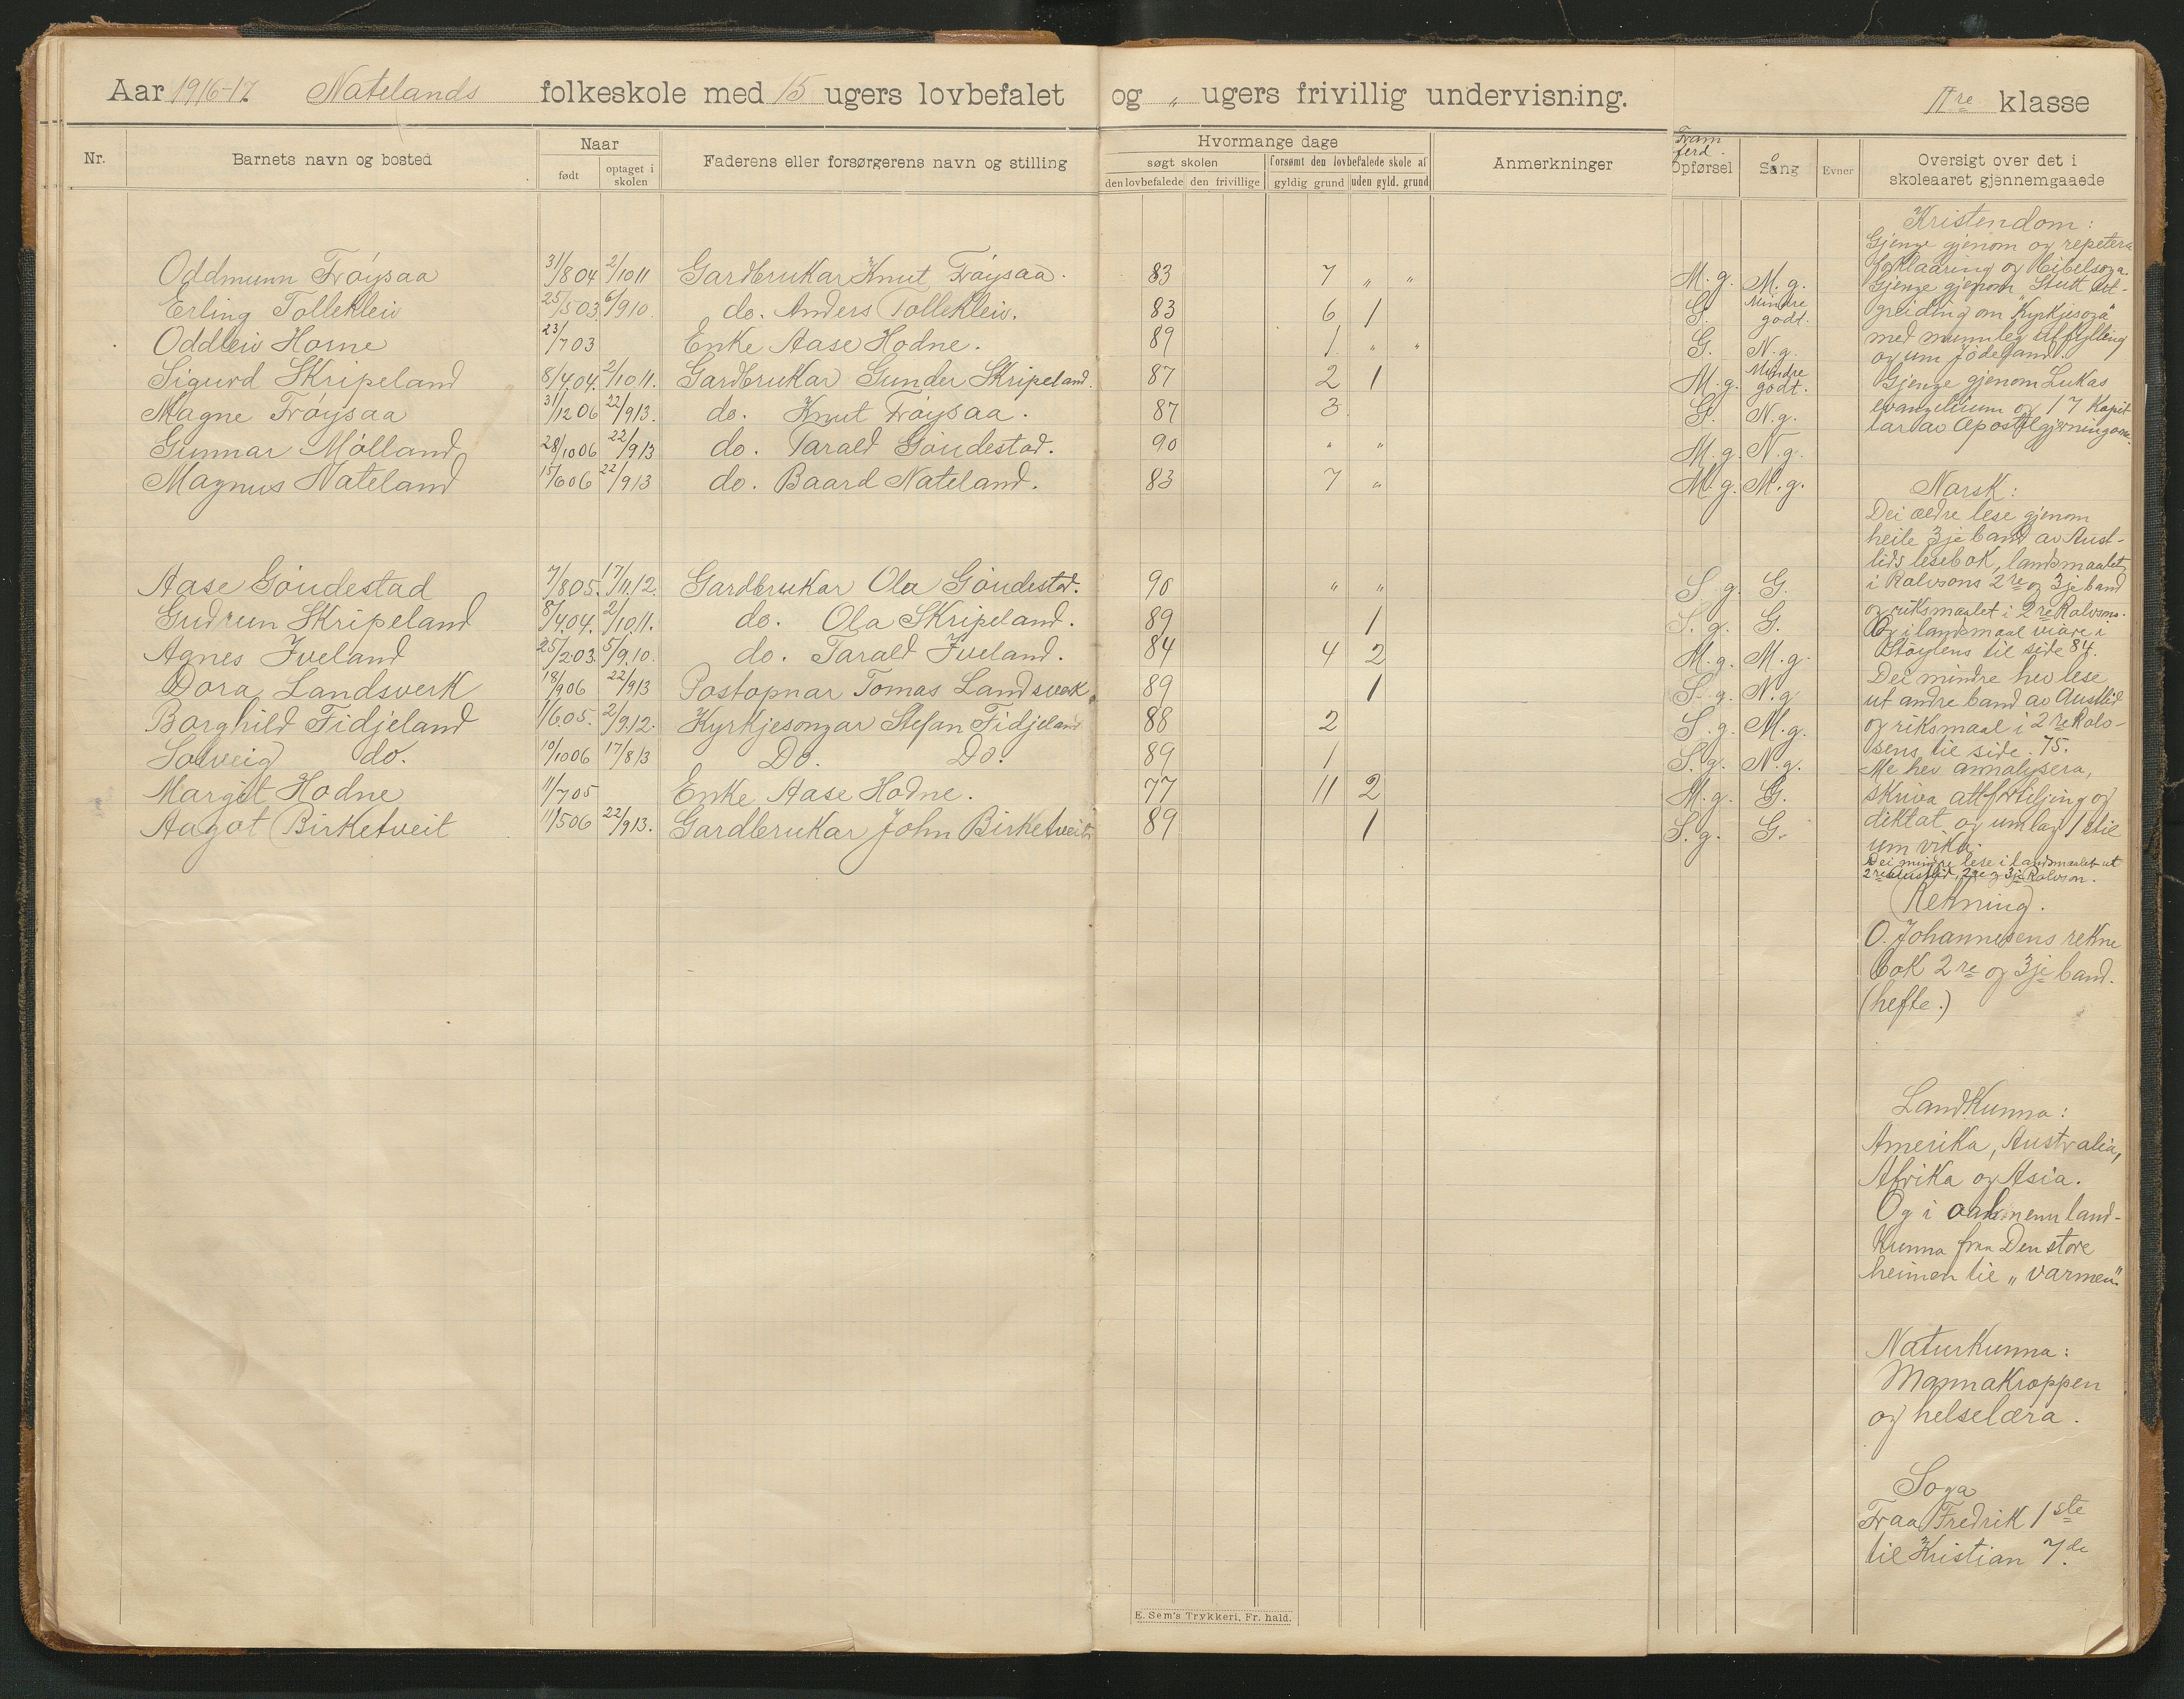 Aar 1916-17. Natelands folkeskole med 15 ugers lovbefalet og „ ugers frivillig undervisning. IIre klasse
Nr.
Barnets navn og bosted
Naar
født
optaget i skolen
Faderens eller forsørgerens navn og stilling
Hvormange dage
søgt skolen
forsømt den lovbefalede skole af
den lovbefalede
den frivillige
gyldig grund
uden gyld. grund
Anmerkninger
Framferd.
Opførsel
Sång
Evner
Oversigt over det i
skoleaaret gjennemgaaede
Oddmunn Frøysaa 31/8 04 2/10 11 Gardbrukar Knut Frøysaa. 83 7 „ „ M.g. M.g.
Erling Tollekleiv 25/5 03 6/9 10. do. Anders Tollekleiv. 83 6 1 G. Mindre godt.
Oddleiv Hosne 23/7 03 Enke Aase Hodne. 89 1 „ „ G. N.g.
Sigurd Skripeland 8/4.04. 2/10.11. Gardbrukar Gunder Skripeland. 87 2 1 M.g. Mindre godt.
Magne Frøysaa 31/12 06 22/9 13. do. Knut Frøysaa. 87 3 G. N.g.
Gunnar Mølland 28/10 06 22/9 13 do. Tarald Gøudestad. 90 „ „ M.g. N.g.
Magnus Nateland 15/6 06 22/9 13 do. Baard Nateland. 83 7 „ M.g. M.g.
Aase Gøudestad 7/8 05. 17/11.12. Gardbrukar Ola Gøudestad. 90 „ „ S.g. G.
Gudrun Skripeland 8/4.04. 2/10.11. do. Ola Skripeland. 89 1 S.g. G.
Agnes Iveland 25/2.03. 5/9.10. do. Tarald Iveland. 84 4 2 M.g. M.g.
Dora Landsverk 18/9 06 22/9 13 Postopnar Tomas Landsverk. 89 1 S.g. N.g.
Borghild Fidjeland 1/6 05. 2/9.12. Kyrkjesongar Stefan Fidjeland 88 2 S.g. M.g.
Solveig do. 10/10 06 17/8 13 Do. Do. 89 1 S.g. N.g.
Margit Hodne 11/7 05 Enke Aase Hodne. 77 11 2 M.g. G.
Aagot Birketveit 11/5 06 22/9 13. Gardbrukar John Birketveit 89 1 S.g. G.
Kristendom:
Gjenge gjenom og repetera
forklaaring og bibelsoga.
Gjenge gjenom Stutt ut-
greiding om „Kyrkjesoga"
med munnleg utfylling
og um Jødeland.
Gjenge gjenom Lukas
evangelium og 17 kapit
lar av Apostelgjerningane.
Norsk:
Dei ældre lese gjenom
heile 3je band av Aust-
lids lesebok, landsmaalet
i Rolvsons 2re og 3je band
og riksmaalet i 2re Rolvsons.
Og i landsmaal vidare i
Støylens til side 84.
Dei mindre hev lese
ut andre band av Austlid
og riksmaal i 2re Rolv-
sens til side 75.
Me hev annalysera,
skriva attforteljing og
diktat og umlag 1 stil
um vika.
Dei mindre lese i landsmaalet ut
2re Austlid, 2re og 3je Rolvson.
Rekning.
O. Johannesens rekne
bok 2re og 3je band.
(hefte.)
Landkunna:
Amerika, Australia,
Afrika og Asia.
Og i aalmenn land-
kunna fraa Den store
heimen til „varmen".
Naturkunna:
Mannakroppen
og helselæra.
Soga
Fraa Fredrik 1ste
til Kristian 7de.
E. Sem's Trykkeri, Fr. hald.